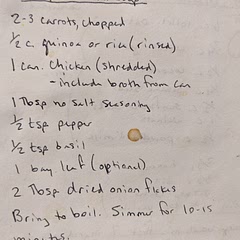 2-3 carrots, chopped
1/2 c. quinoa or rice (rinsed)
1 can chicken (shredded)
- include broth from can
1 Tbsp no salt seasoning
1/2 tsp pepper
1/2 tsp basil
1 bay leaf (optional)
2 Tbsp dried onion flakes
Bring to boil. Simmer for 10-15
minutes.